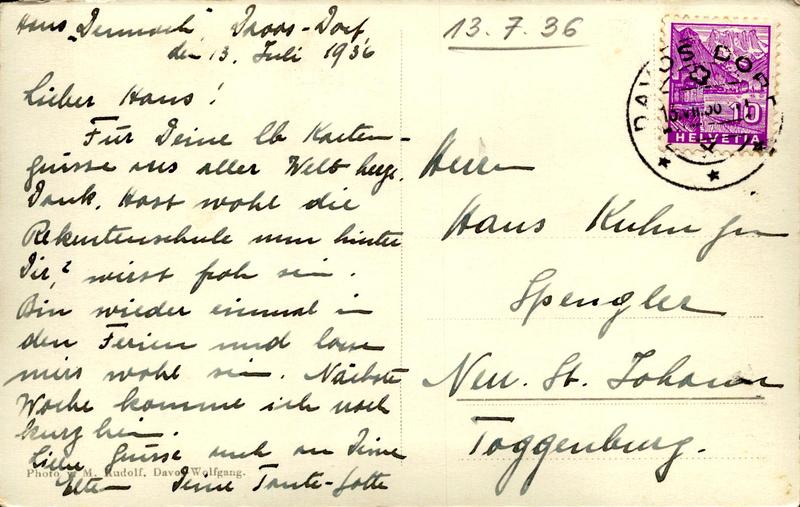 Haus „Dennoch", Davos-Dorf,
den 13. Juli 1936
Lieber Hans!
Für Deine lb Karten-
grüsse aus aller Welt herzl.
Dank. Hast wohl die
Rekrutenschule nun hinter
Dir, wirst froh sein.
Bin wieder einmal in
den Ferien und lasse
mirs wohl sein. Nächste
Woche komme ich noch
kurz heim.
Liebe Grüsse auch an Deine
Eltern Deine Tante
Photo M. Rudolf, Davos-Wolfgang.
13.7.36
DAVOS DORF
10
HELVETIA
Herrn
Hans Kuhn jun
Spengler
Neu. St. Johann
Toggenburg.